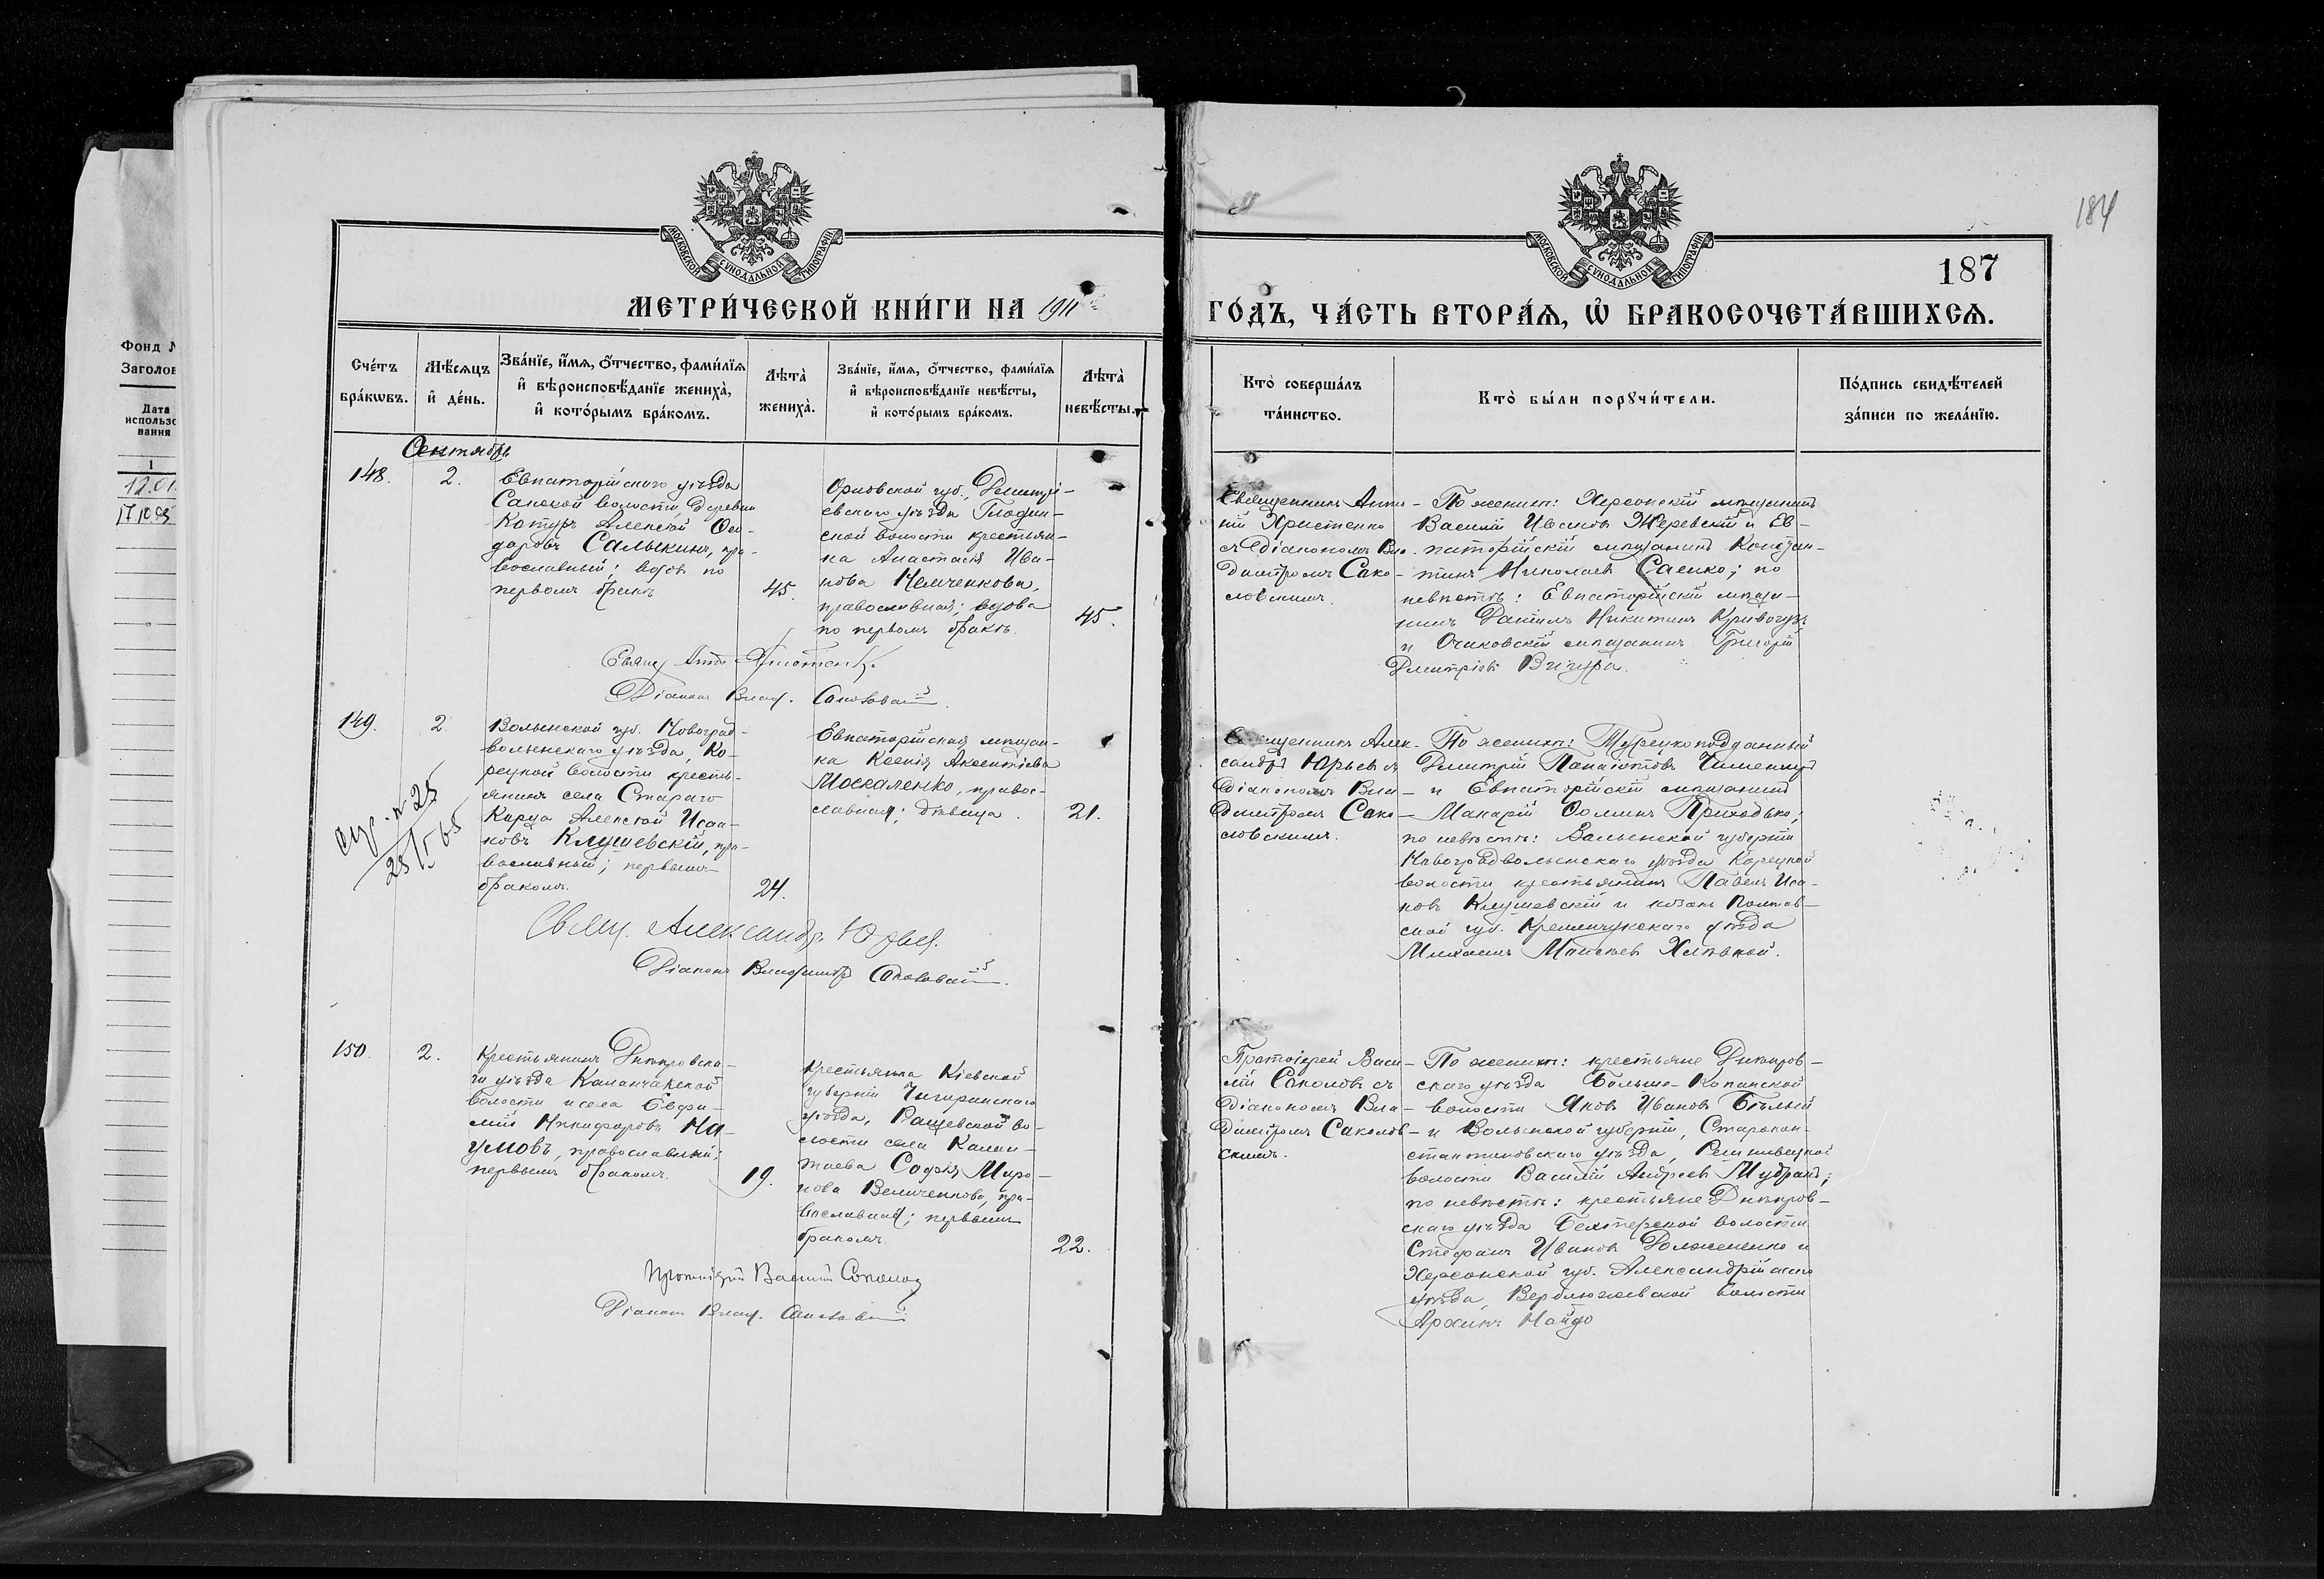 184
187
МОСКОВСКОЙ СѴНОДАЛЬНОЙ ТИПОГРАФІИ
МОСКОВСКОЙ СѴНОДАЛЬНОЙ ТИПОГРАФІИ
МЕТРИ́ЧЕСКОЙ КНИ́ГИ НА 1911
ГО́ДЪ, ЧА́СТЬ ВТОРА́Ѧ, Ѡ҆ БРАКОСОЧЕТА́ВШИХСѦ.
Фонд №
Заголов
Дата
использо
вания
1
12.01.
17.10.85
Сче́тъ
бра́кѡвъ.
Мѣ́сѧцъ
и҆ де́нь.
Зва́нїе, и҆́мѧ, ѻ҆́тчество, фами́лїѧ
и҆ вѣроисповѣ́данїе жениха̀,
и҆ кото́рымъ бра́комъ.
Лѣта̀
жениха̀.
Зва́нїе, и҆́мѧ, ѻ҆́тчество, фами́лїѧ
и҆ вѣроисповѣ́данїе невѣ́сты,
и҆ кото́рымъ бра́комъ.
Лѣта̀
невѣ́сты.
Кто̀ соверша́лъ
та́инство.
Кто̀ бы́ли порꙋчи́тели.
По́дпись свидѣ́телей
за́писи по жела́нїю.
Сентябрь
148.
2.
Евпаторійскаго уѣзда
Сакской волости, деревни
Алексѣй Ѳео-
доровъ Салыкинъ, пра-
вославный; вдовъ по
первомъ бракѣ
45.
Орловской губ., Дмитрі-
евскаго уѣзда
ской волости крестьян-
ка Анастасія Ива-
нова Немченкова,
православная; вдова
по первомъ бракѣ.
45.
Священникъ Анто-
ній Христенко
съ діакономъ Вла-
диміромъ Сако-
ловскимъ.
По женихѣ: Херсонскій мѣщанинъ
Василій Ивановъ Жеревскій и Ев-
паторійскій мѣщанинъ Констан-
тинъ Николаевъ Саенко; по
невѣстѣ: Евпаторійскій мѣща-
нинъ Даніилъ Никитинъ
и Очаковскій мѣщанинъ Григорій
Дмитріевъ Вичура.
Діаконъ Влад.
149.
2.
Волынской губ. Новоград-
волынскаго уѣзда, Ко-
рецкой волости кресть-
янинъ села Стараго
Корца Алексѣй Исаа-
ковъ Клушевскій, пра-
вославный; первымъ
бракомъ.
24.
Евпаторійская мѣщан-
ка Ксенія Авксентіева
Москаленко, правос-
лавная; дѣвица.
21.
Священникъ Алек-
сандръ Юрьевъ съ
діакономъ Вла-
диміромъ Сако-
ловскимъ.
По женихѣ: Турецкоподданный
Дмитрій Панаіотовъ
и Евпаторійскій мѣщанинъ
Макарій Ѳоминъ Приходько;
по невѣстѣ: Волынской губерніи
Новоградволынскаго уѣзда Корецкой
волости крестьянинъ Павелъ Исаа-
ковъ Клушевскій и козакъ Полтав-
ской губ. Кременчукскаго уѣзда
Михаилъ Моисѣевъ
Свящ. Александръ Юрьев.
Діаконъ Владиміръ
150.
2.
Крестьянинъ Днѣпровска-
го уѣзда Каланчакской
волости и села Евфи-
мій Никифоровъ На-
умовъ, православный;
первымъ бракомъ.
19.
Крестьянка Кіевской
губерніи Чигиринскаго
уѣзда, во-
лости села
Софія Миро-
нова Величенкова, пра-
вославная; первымъ
бракомъ.
22.
Протоіерей Васи-
лій Соколовъ съ
діакономъ Вла-
диміромъ Саколов-
скимъ.
По женихѣ: крестьяне Днѣпров-
скаго уѣзда Больше-Копанской
волости Яковъ Ивановъ Бѣлый
и Волынской губерніи, Старокон-
стантиновскаго уѣзда,
волости Василій Андреевъ
по невѣстѣ: крестьяне Днѣпров-
скаго уѣзда Бехтерской волости
Стефанъ Ивановъ Долженко и
Херсонской губ. Александрійскаго
уѣзда, Верблюжевской волости
Архипъ
Протоіерей Василій Соколов
Діаконъ Влад.